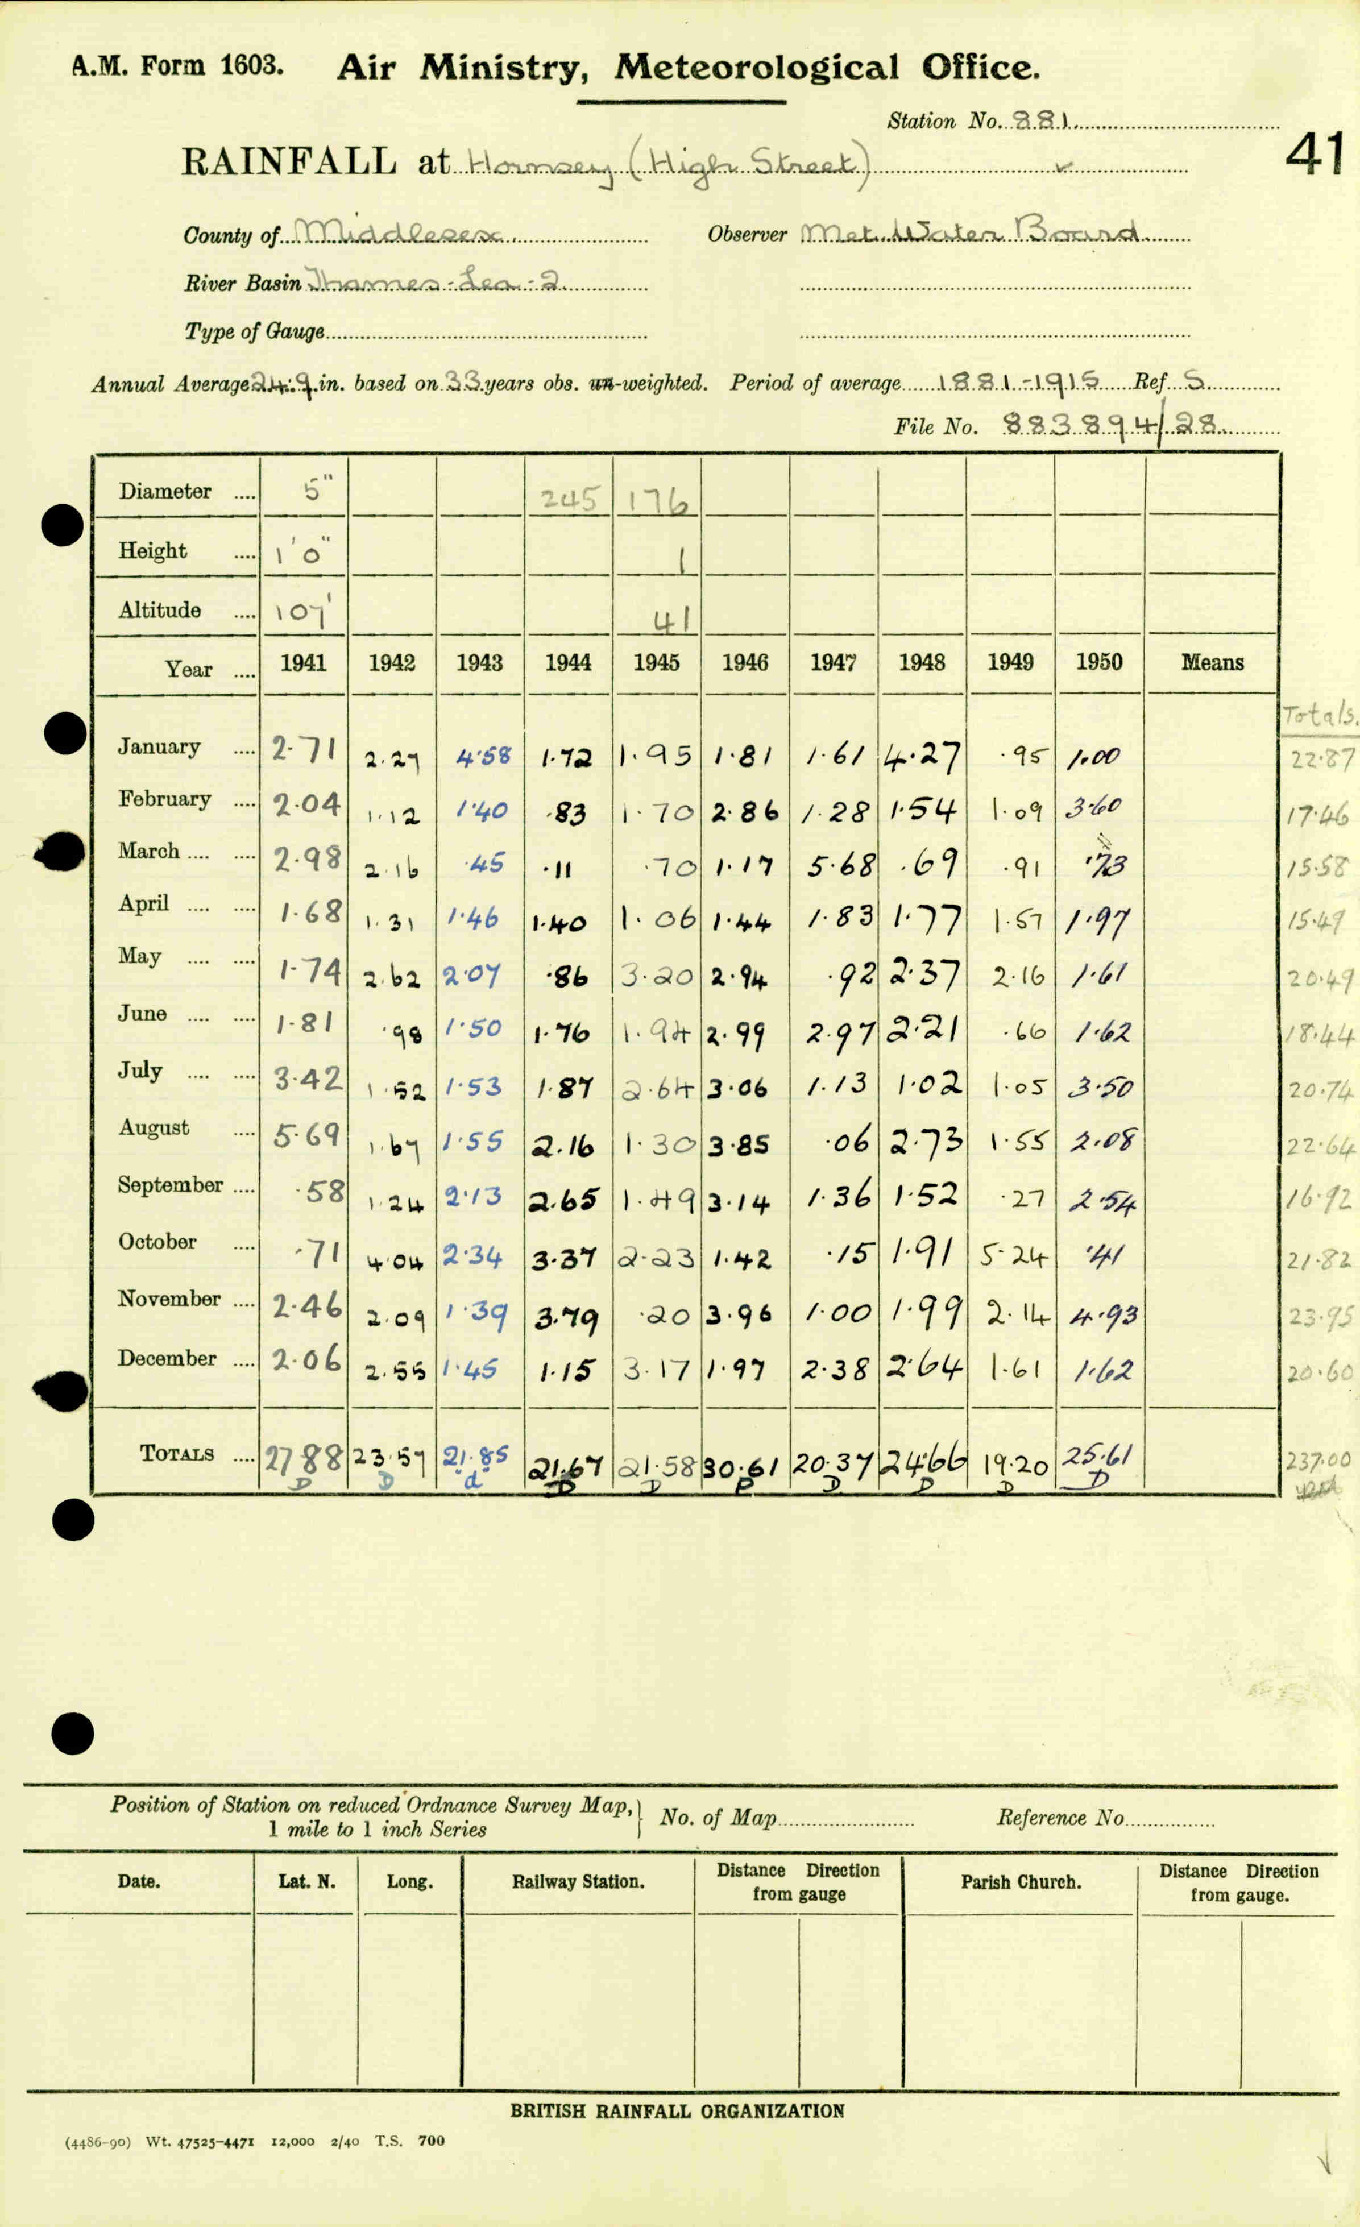 A.M. Form 1603. Air Ministry, Meteorological Office.
Station No. 881
41
RAINFALL at Hornsey (High Street)
County of Middlesex. Observer Met. Water Board
River Basin Thames-Lea-2
Type of Gauge
Annual Average 24.9 in. based on 33 years obs. un-weighted. Period of average 1881-1915 Ref. S
File No. 883894/28
Diameter .... 5" 245 176
Height .... 1'0" 1
Altitude .... 107' 41
Year .... 1941 1942 1943 1944 1945 1946 1947 1948 1949 1950 Means
Totals.
January .... 2.71 2.27 4.58 1.72 1.95 1.81 1.61 4.27 .95 1.00 22.87
February .... 2.04 1.12 1.40 .83 1.70 2.86 1.28 1.54 1.09 3.60 17.46
March .... .... 2.98 2.16 .45 .11 .70 1.17 5.68 .69 .91 .73 15.58
April .... .... 1.68 1.31 1.46 1.40 1.06 1.44 1.83 1.77 1.57 1.97 15.49
May .... .... 1.74 2.62 2.07 .86 3.20 2.94 .92 2.37 2.16 1.61 20.49
June .... .... 1.81 .98 1.50 1.76 1.94 2.99 2.97 2.21 .66 1.62 18.44
July .... .... 3.42 1.52 1.53 1.87 2.64 3.06 1.13 1.02 1.05 3.50 20.74
August .... 5.69 1.67 1.55 2.16 1.30 3.85 .06 2.73 1.55 2.08 22.64
September .... .58 1.24 2.13 2.65 1.49 3.14 1.36 1.52 .27 2.54 16.92
October .... .71 4.04 2.34 3.37 2.23 1.42 .15 1.91 5.24 .41 21.82
November .... 2.46 2.09 1.39 3.79 .20 3.96 1.00 1.99 2.14 4.93 23.95
December .... 2.06 2.55 1.45 1.15 3.17 1.97 2.38 2.64 1.61 1.62 20.60
TOTALS .... 27.88 23.57 21.85 21.67 21.58 30.61 20.37 24.66 19.20 25.61 237.00
D D "d" D D D D D D D
Position of Station on reduced Ordnance Survey Map, } No. of Map Reference No.
1 mile to 1 inch Series
Date. Lat. N. Long. Railway Station. Distance Direction from gauge Parish Church. Distance Direction from gauge.
BRITISH RAINFALL ORGANIZATION
(4486-90) Wt. 47525-4471 12,000 2/40 T.S. 700